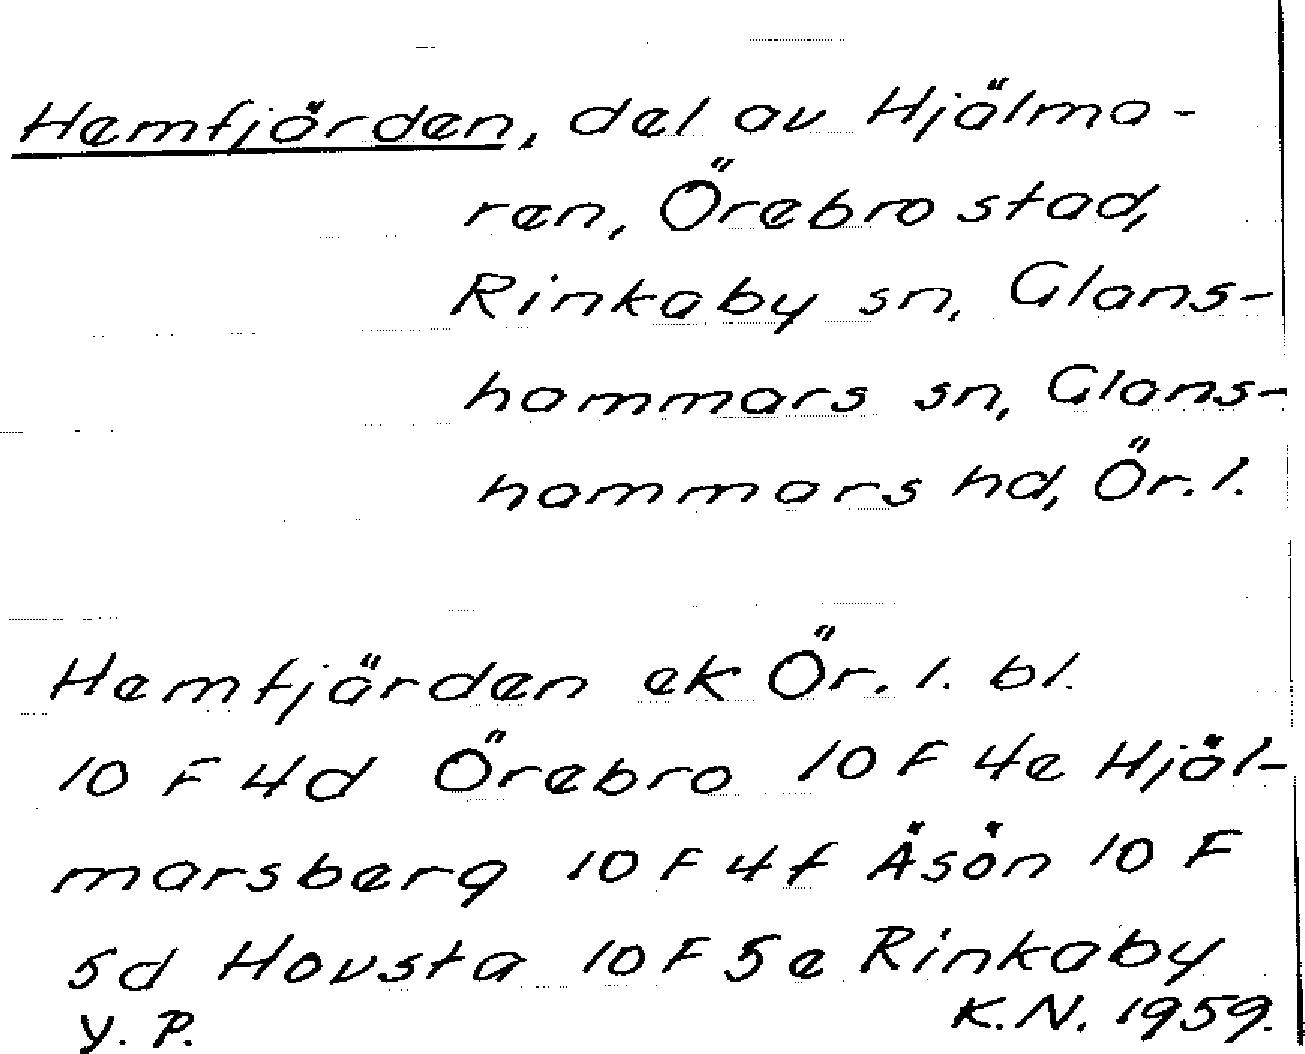 Hemfjärden, del av Hjälma-
ren, Örebro stad,
Rinkaby sn, Glans-
hammars sn, Glans-
hammars hd, Ör. l.
Hemfjärden ek Ör. l. bl.
10 F 4d Örebro 10 F 4e Hjäl-
marsberg 10 F 4f Äsön 10 F
5d Hovsta 10 F 5e Rinkaby
Y. P. K. N. 1959.